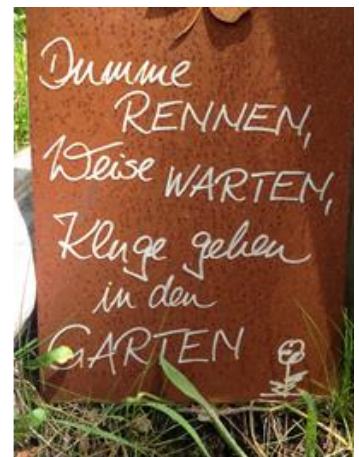 Dumme
RENNEN,
Weise WARTEN,
Kluge gehen
in den
GARTEN